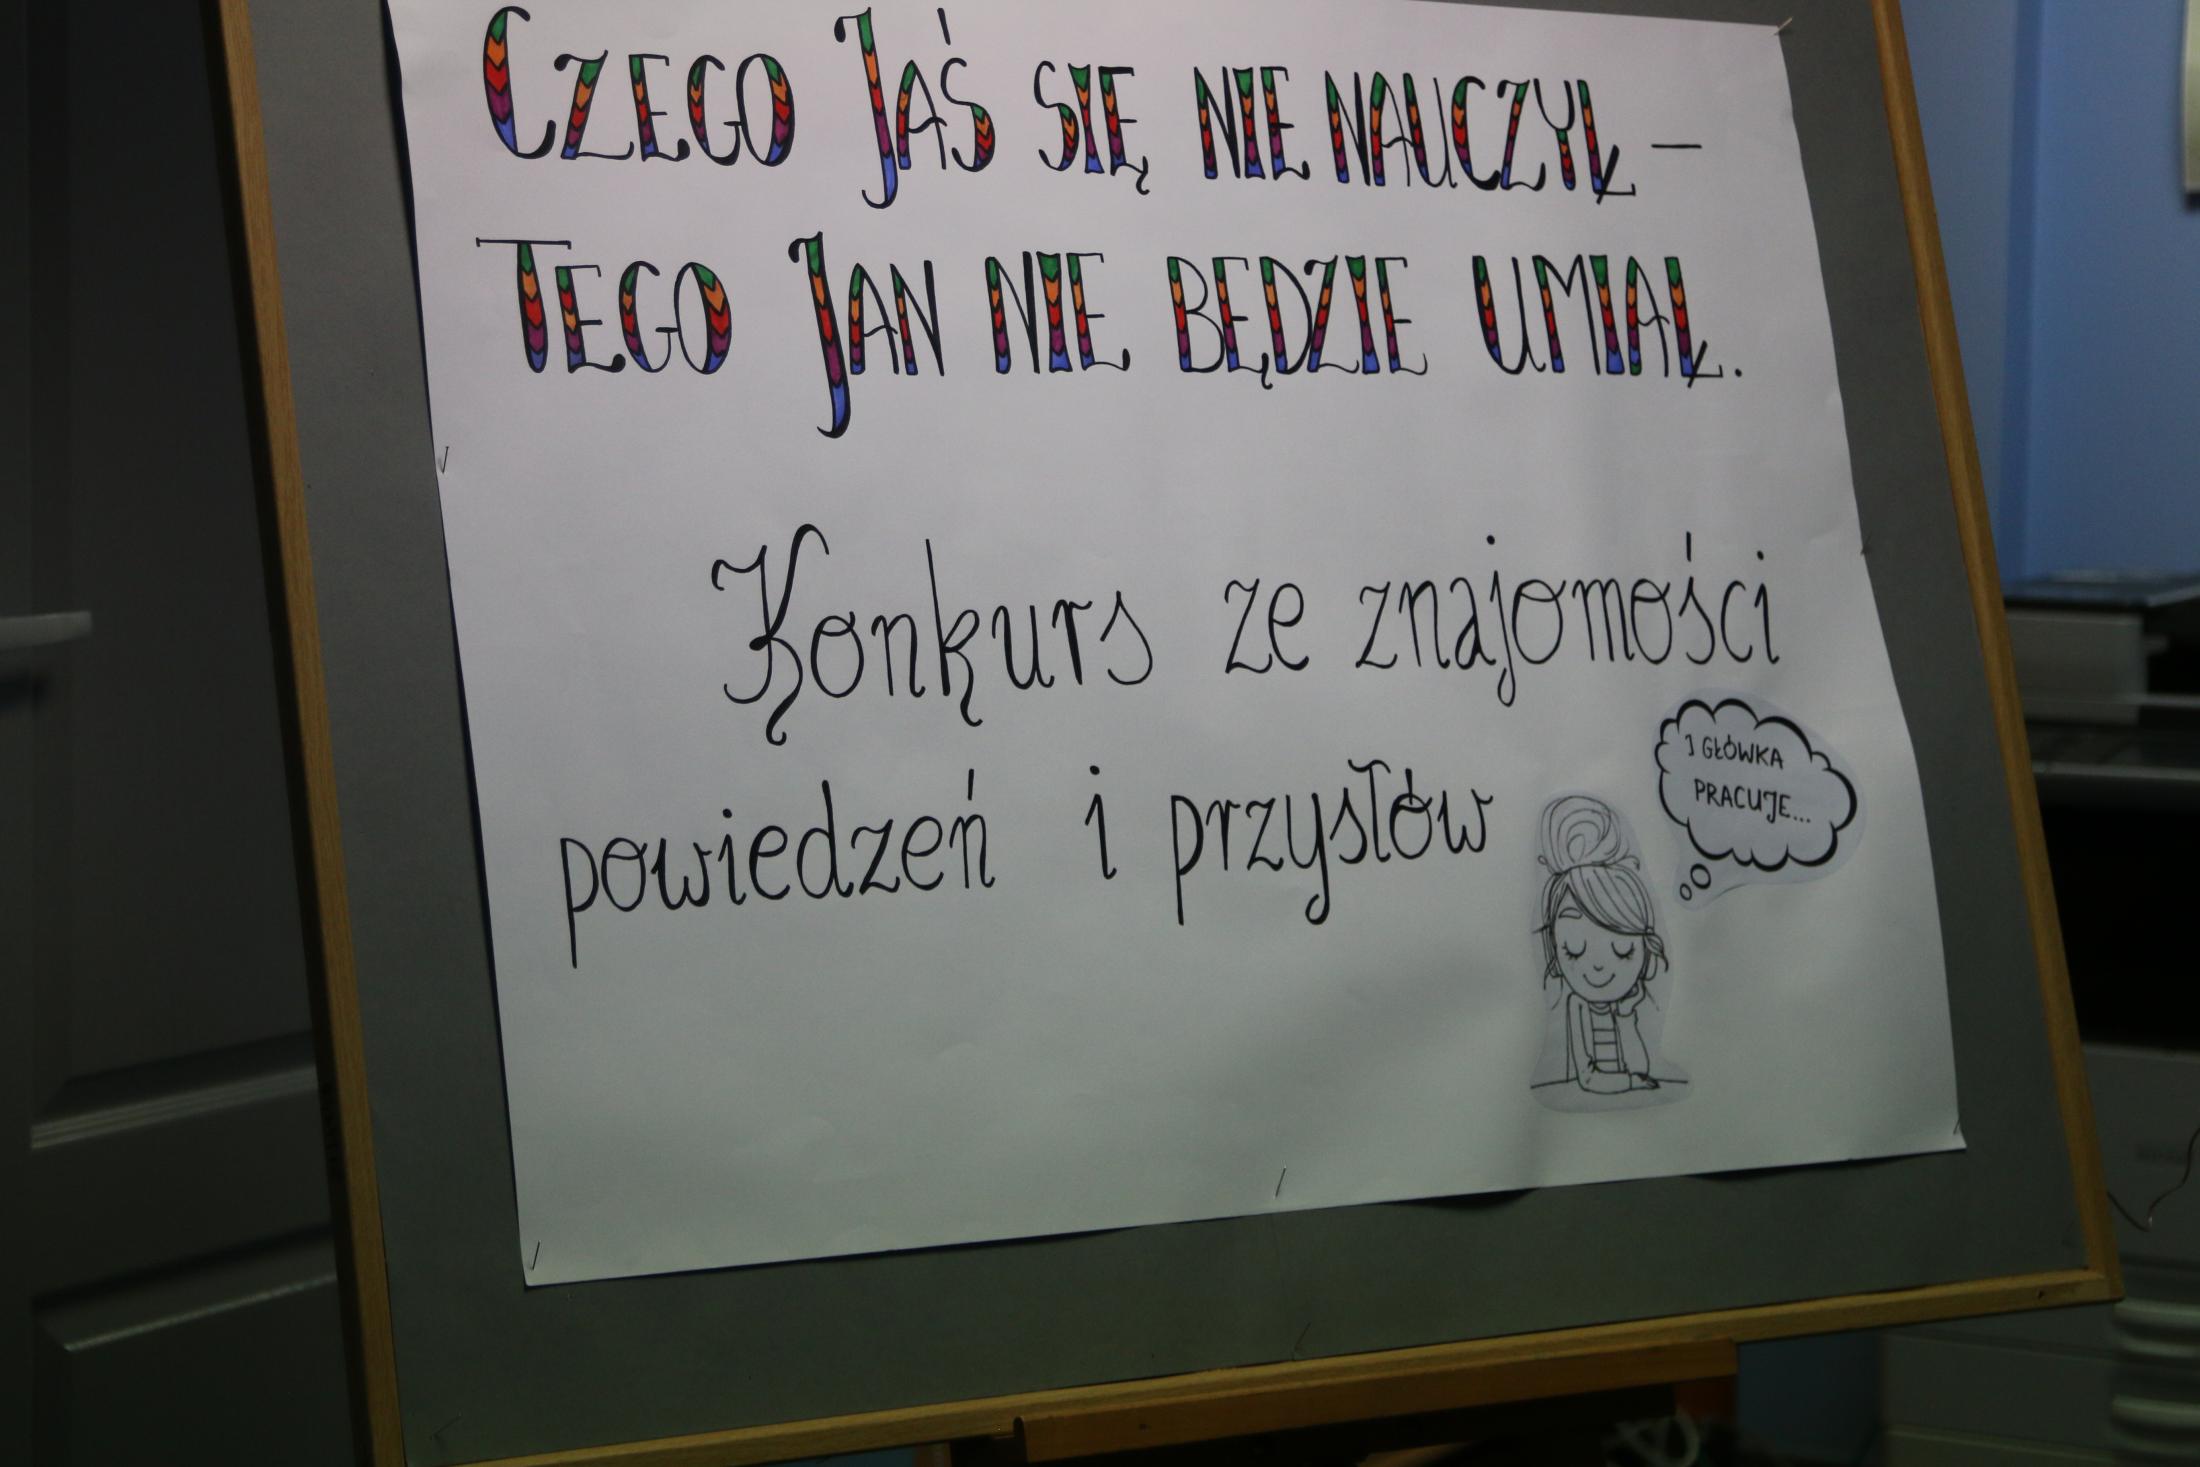 CZEGO JAŚ SIĘ NIE NAUCZYŁ –
TEGO JAN NIE BĘDZIE UMIAŁ.
Konkurs ze znajomości
powiedzeń i przysłów
I GŁÓWKA
PRACUJE...